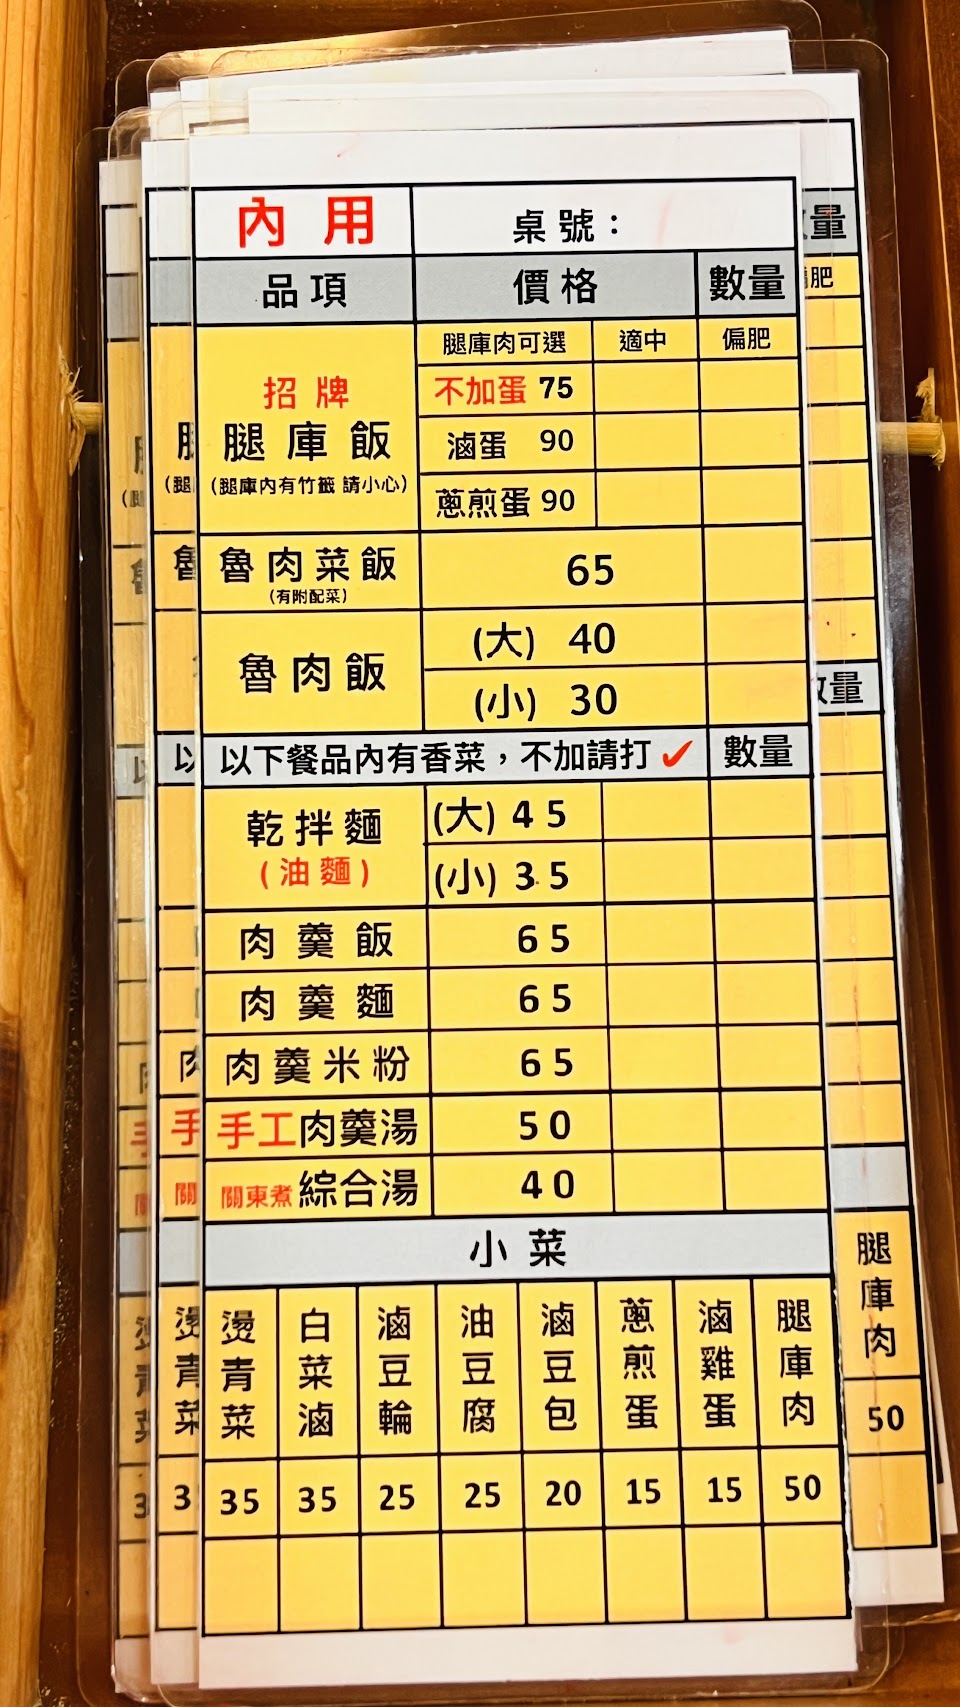 內用 桌號：
品項 價格 數量
腿庫肉可選 適中 偏肥
招牌
腿庫飯
(腿庫內有竹籤 請小心)
不加蛋 75
滷蛋 90
蔥煎蛋 90
魯肉菜飯 65
(有附配菜)
魯肉飯
(大) 40
(小) 30
以下餐品內有香菜，不加請打 ✓ 數量
乾拌麵
(油麵)
(大) 45
(小) 35
肉羹飯 65
肉羹麵 65
肉羹米粉 65
手工肉羹湯 50
關東煮 綜合湯 40
小菜
燙青菜 白菜滷 滷豆輪 油豆腐 滷豆包 蔥煎蛋 滷雞蛋 腿庫肉
35 35 25 25 20 15 15 50
量
肥
數量
腿庫肉
50